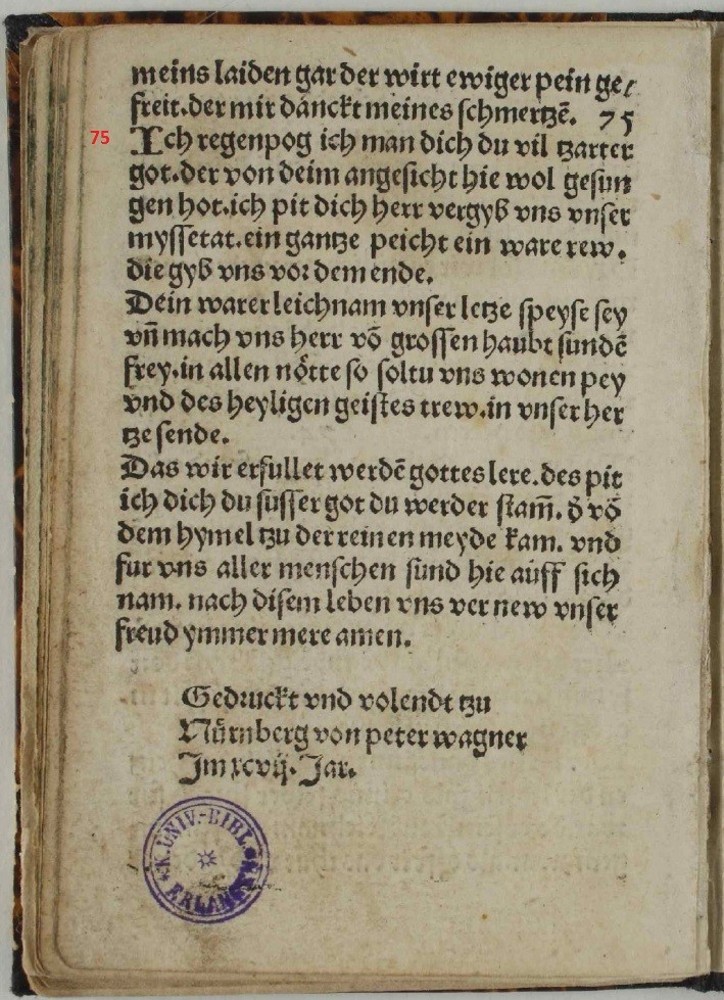 meins laiden gar der wirt ewiger pein ge/
freit. der mir dánckt meines schmertzē. 75
75 Ich regenpog ich man dich du vil tzarter
got. der von deim angesicht hie wol gesun
gen hot. ich pit dich herr vergyb vns vnser
myssetat. ein gantze peicht ein ware rew.
die gyb vns vor dem ende.
Dein warer leichnam vnser letze speyse sey
vñ mach vns herr vō grossen haubt sundē
frey. in allen nötte so soltu vns wonen pey
vnd des heyligen geistes trew. in vnser her
tze sende.
Das wir erfullet werdē gottes lere. des pit
ich dich du susser got du werder stam̄. ð vō
dem hymel tzu der reinen meyde kam. vnd
fur vns aller menschen sünd hie aúff sich
nam. nach disem leben vns ver new vnser
freud ymmer mere amen.
Gedruckt vnd volendt tzu
Nürnberg von peter wagner
Im xcvij. Jar.
K. UNIV.-BIBL.
ERLANGEN